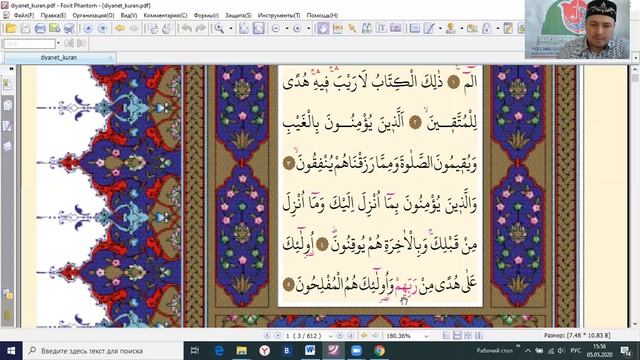 diyanet_kuran.pdf - Foxit Phantom - [diyanet_kuran.pdf]
Файл Правка(E) Организация(O) Вид(V) Комментарии(C) Формы(r) Защита(S) Инструменты(T) Помощь(H)
diyanet_kuran
الٓمٓ ١ ذٰلِكَ الْكِتَابُ لَا رَيْبَ فٖيهِ هُدًى
لِلْمُتَّقٖينَ ٢ اَلَّذٖينَ يُؤْمِنُونَ بِالْغَيْبِ
وَيُقٖيمُونَ الصَّلٰوةَ وَمِمَّا رَزَقْنَاهُمْ يُنْفِقُونَ ٣
وَالَّذٖينَ يُؤْمِنُونَ بِمَٓا اُنْزِلَ اِلَيْكَ وَمَٓا اُنْزِلَ
مِنْ قَبْلِكَ وَبِالْاٰخِرَةِ هُمْ يُوقِنُونَ ٤ اُولٰٓئِكَ
عَلٰى هُدًى مِنْ رَبِّهِمْ وَاُولٰٓئِكَ هُمُ الْمُفْلِحُونَ ٥
1 (3 / 612)
180.36%
Размер: [7.48 * 10.83 В]
Введите здесь текст для поиска
Рабочий стол
РУС
15:56
05.05.2020